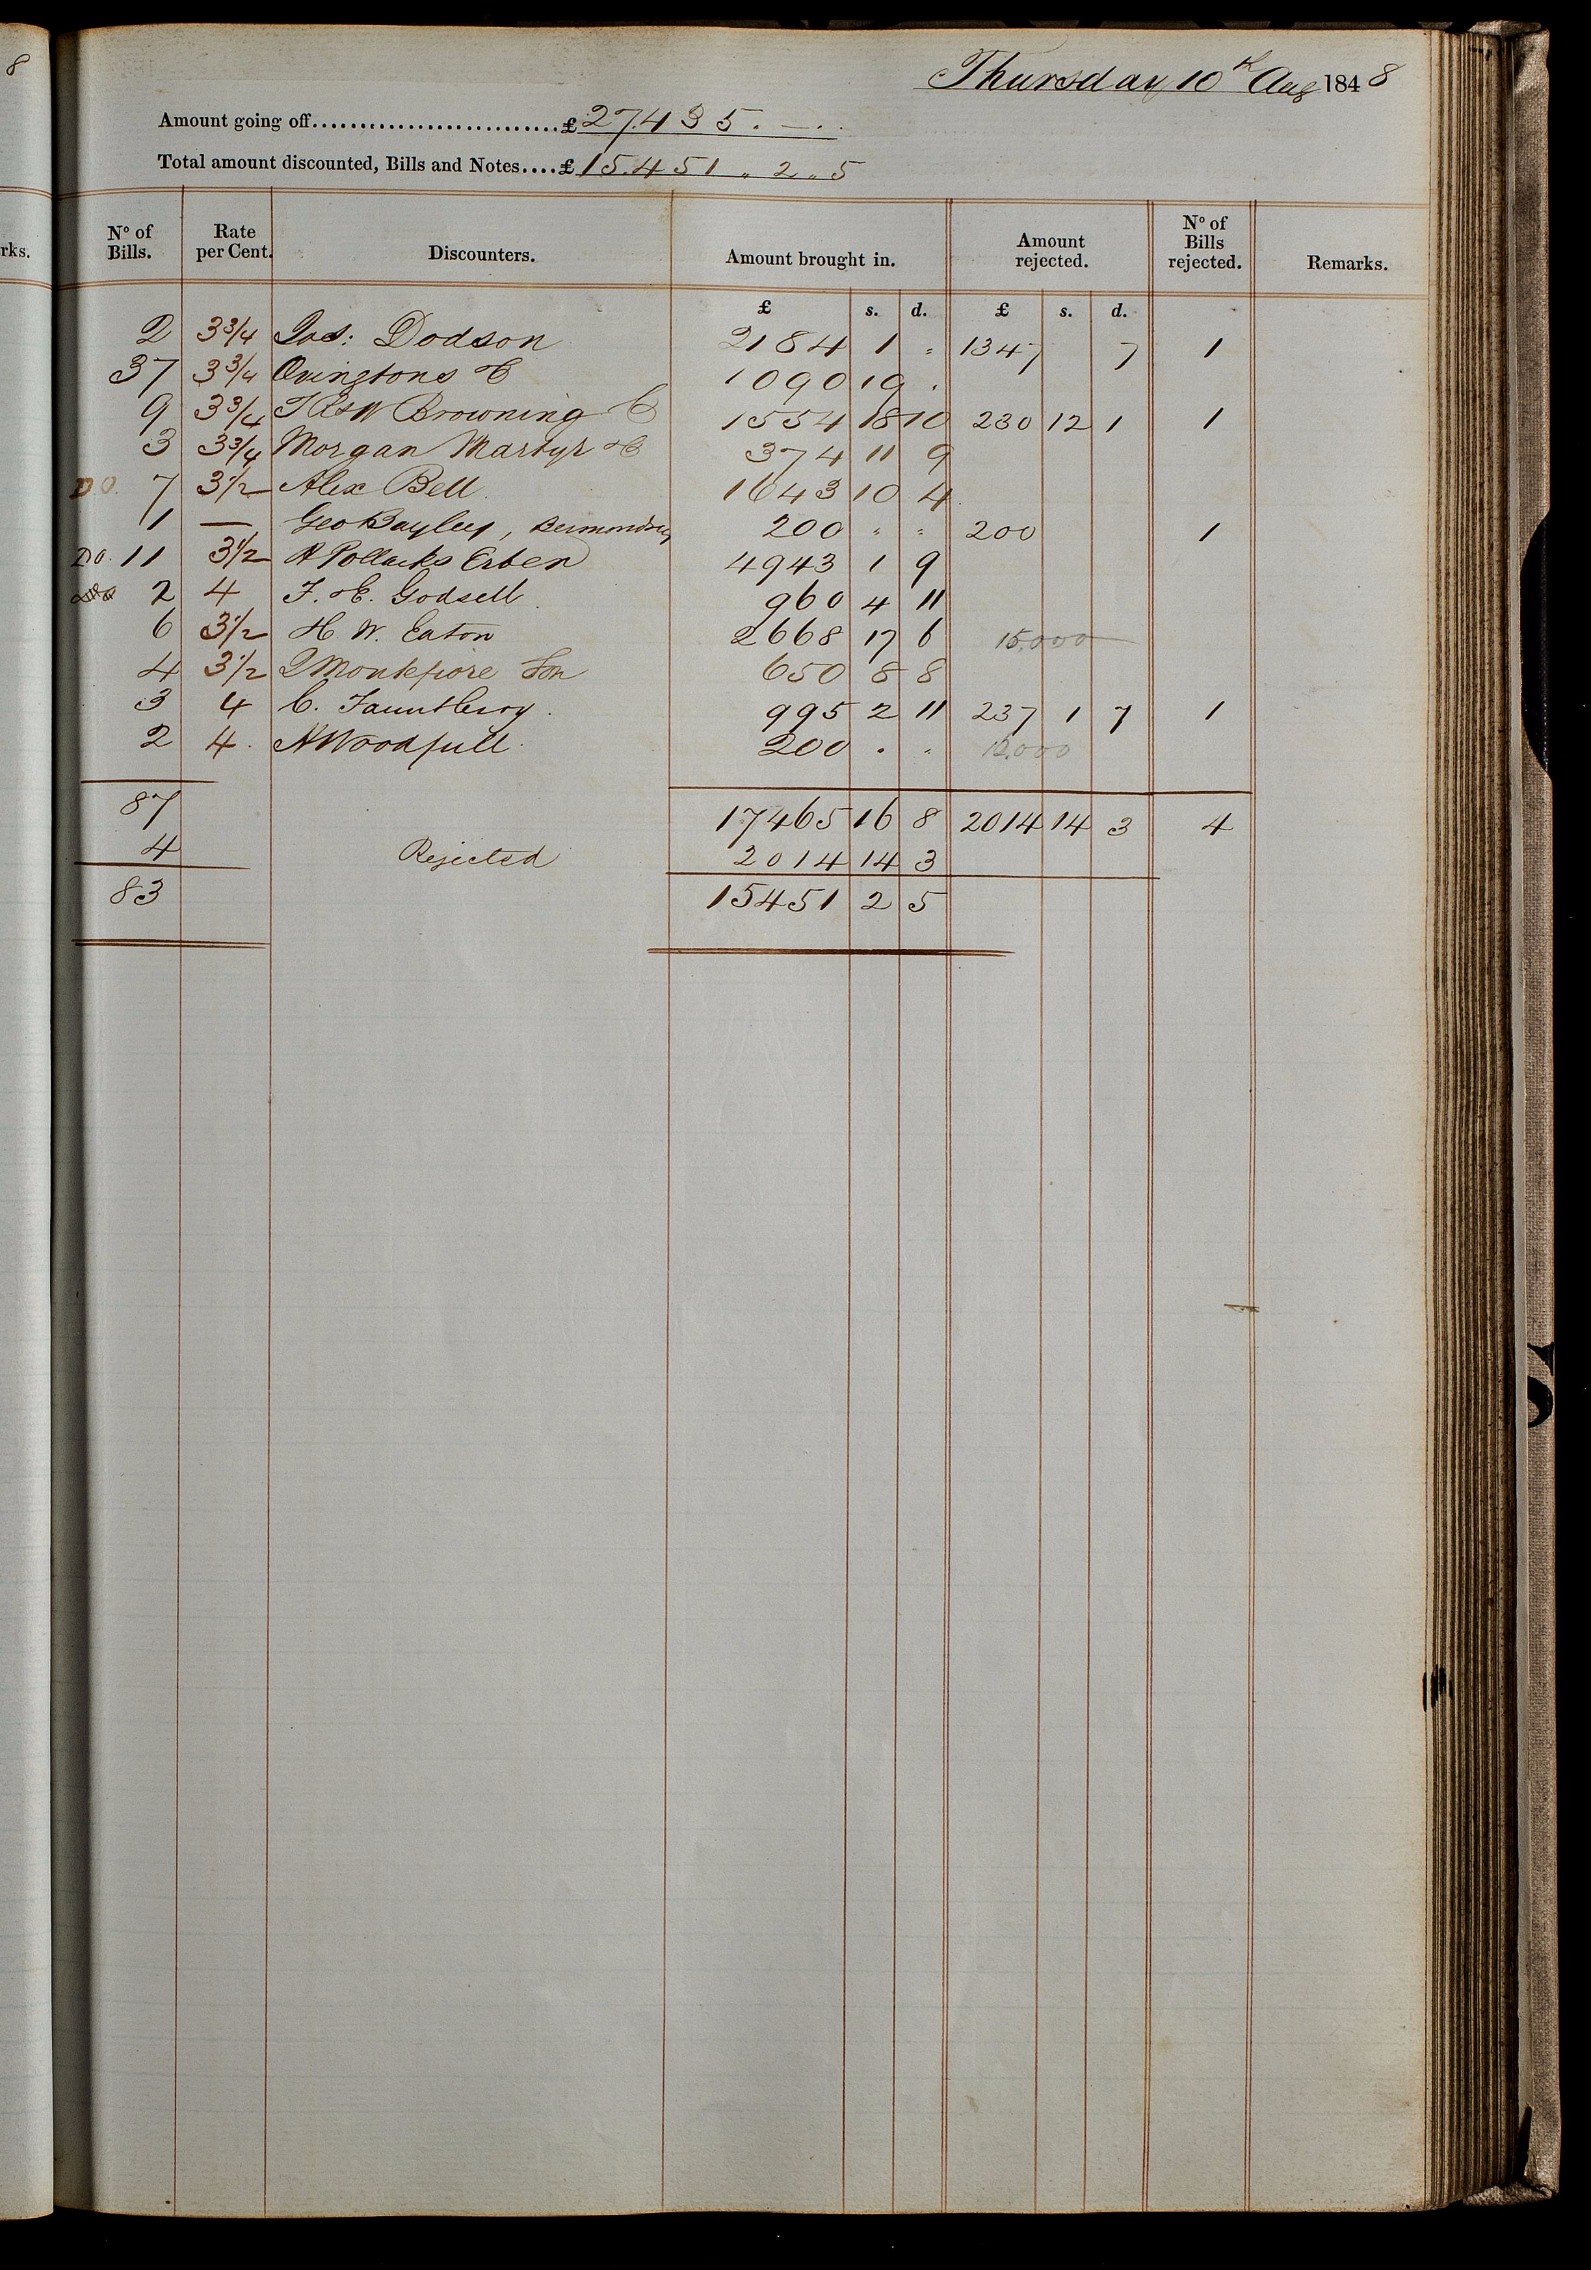 8
rks.
Thursday 10th Aug 1848
Amount going off...........................£ 27.435 . — .
Total amount discounted, Bills and Notes....£ 15.451 " 2 " 5
No of Bills. Rate per Cent. Discounters. Amount brought in. Amount rejected. No of Bills rejected. Remarks.
£ s. d. £ s. d.
2 3 3/4 Jas: Dodson 2184 1 " 1347 7 1
37 3 3/4 Ovingtons & C 1090 19 .
9 3 3/4 T R & W Browning C 1554 18 10 230 12 1 1
3 3 3/4 Morgan Martyr & C 374 11 9
DO. 7 3 1/2 Alex Bell 1643 10 4
1 — Geo Bayley, Bermondsey 200 " " 200 1
DO. 11 3 1/2 A Pollacks Erben 4943 1 9
2 4 F. E. Godsell 960 4 11
6 3 1/2 H W. Eaton 2668 17 6 15,000
4 3 1/2 J Montefiore Son 650 8 8
3 4 C. Fauntleroy. 995 2 11 237 1 7 1
2 4. N Woodfull. 200 . " 12,000
87 17465 16 8 2014 14 3 4
4 Rejected 2014 14 3
83 15451 2 5